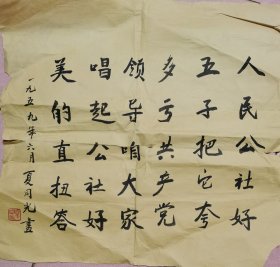 人民公社好
五子把它夸
多亏共产党
领导咱大家
唱起公社好
美的直扭答
一九五九年六月 夏同光画